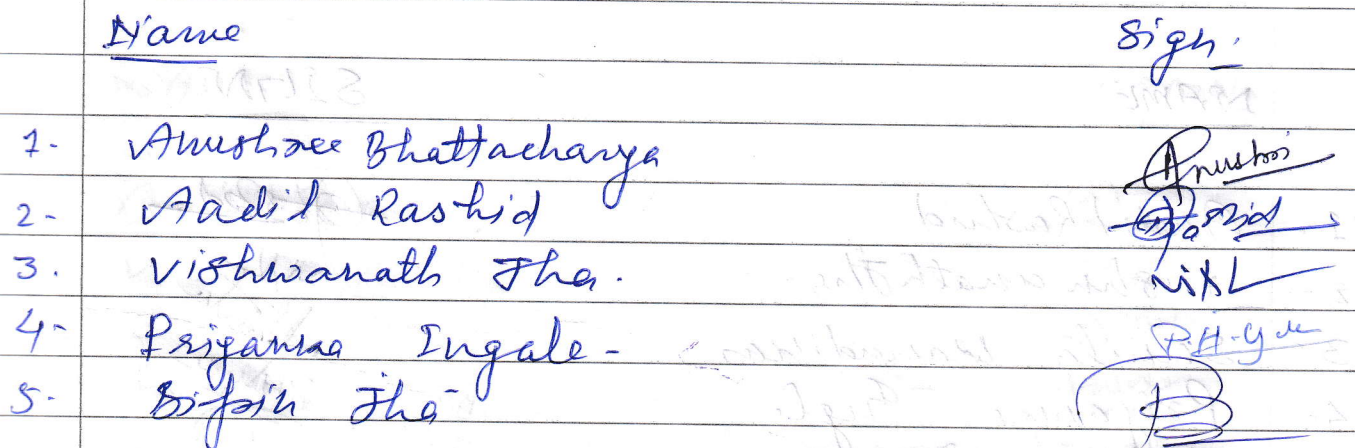 Name Sign.
1- Anushree Bhattacharya Anushri
2- Aadil Rashid Rashid
3. Vishwanath Jha.
4- Priyanka Ingale-
5- Bipin Jha